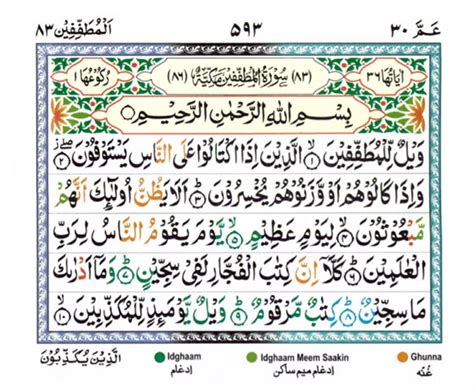 اَلْمُطَفِّفِيْن ٨٣ ۵۹۳ عَمَّ ٣٠
اٰيَاتُهَا ٣٦ (٨٣) سُوْرَةُ الْمُطَفِّفِيْنَ مَكِّيَّةٌ (٨٦) رُكُوْعُهَا ١
بِسْمِ اللّٰهِ الرَّحْمٰنِ الرَّحِيْمِ
وَيْلٌ لِّلْمُطَفِّفِيْنَ ۙ﴿۱﴾ الَّذِيْنَ اِذَا اكْتَالُوْا عَلَى النَّاسِ يَسْتَوْفُوْنَ ۖ﴿۲﴾
وَاِذَا كَالُوْهُمْ اَوْ وَّزَنُوْهُمْ يُخْسِرُوْنَ ﴿۳﴾ اَلَا يَظُنُّ اُولٰٓئِكَ اَنَّهُمْ
مَّبْعُوْثُوْنَ ۙ﴿۴﴾ لِيَوْمٍ عَظِيْمٍ ۙ﴿۵﴾ يَّوْمَ يَقُوْمُ النَّاسُ لِرَبِّ
الْعٰلَمِيْنَ ﴿۶﴾ كَلَّاۤ اِنَّ كِتٰبَ الْفُجَّارِ لَفِيْ سِجِّيْنٍ ﴿۷﴾ وَمَاۤ اَدْرٰىكَ
مَا سِجِّيْنٌ ﴿۸﴾ كِتٰبٌ مَّرْقُوْمٌ ﴿۹﴾ وَيْلٌ يَّوْمَئِذٍ لِّلْمُكَذِّبِيْنَ ﴿۱۰﴾
الَّذِيْنَ يُكَذِّبُوْنَ Idghaam Idghaam Meem Saakin Ghunna
اِدغام اِدغام میم ساکن غُنّه